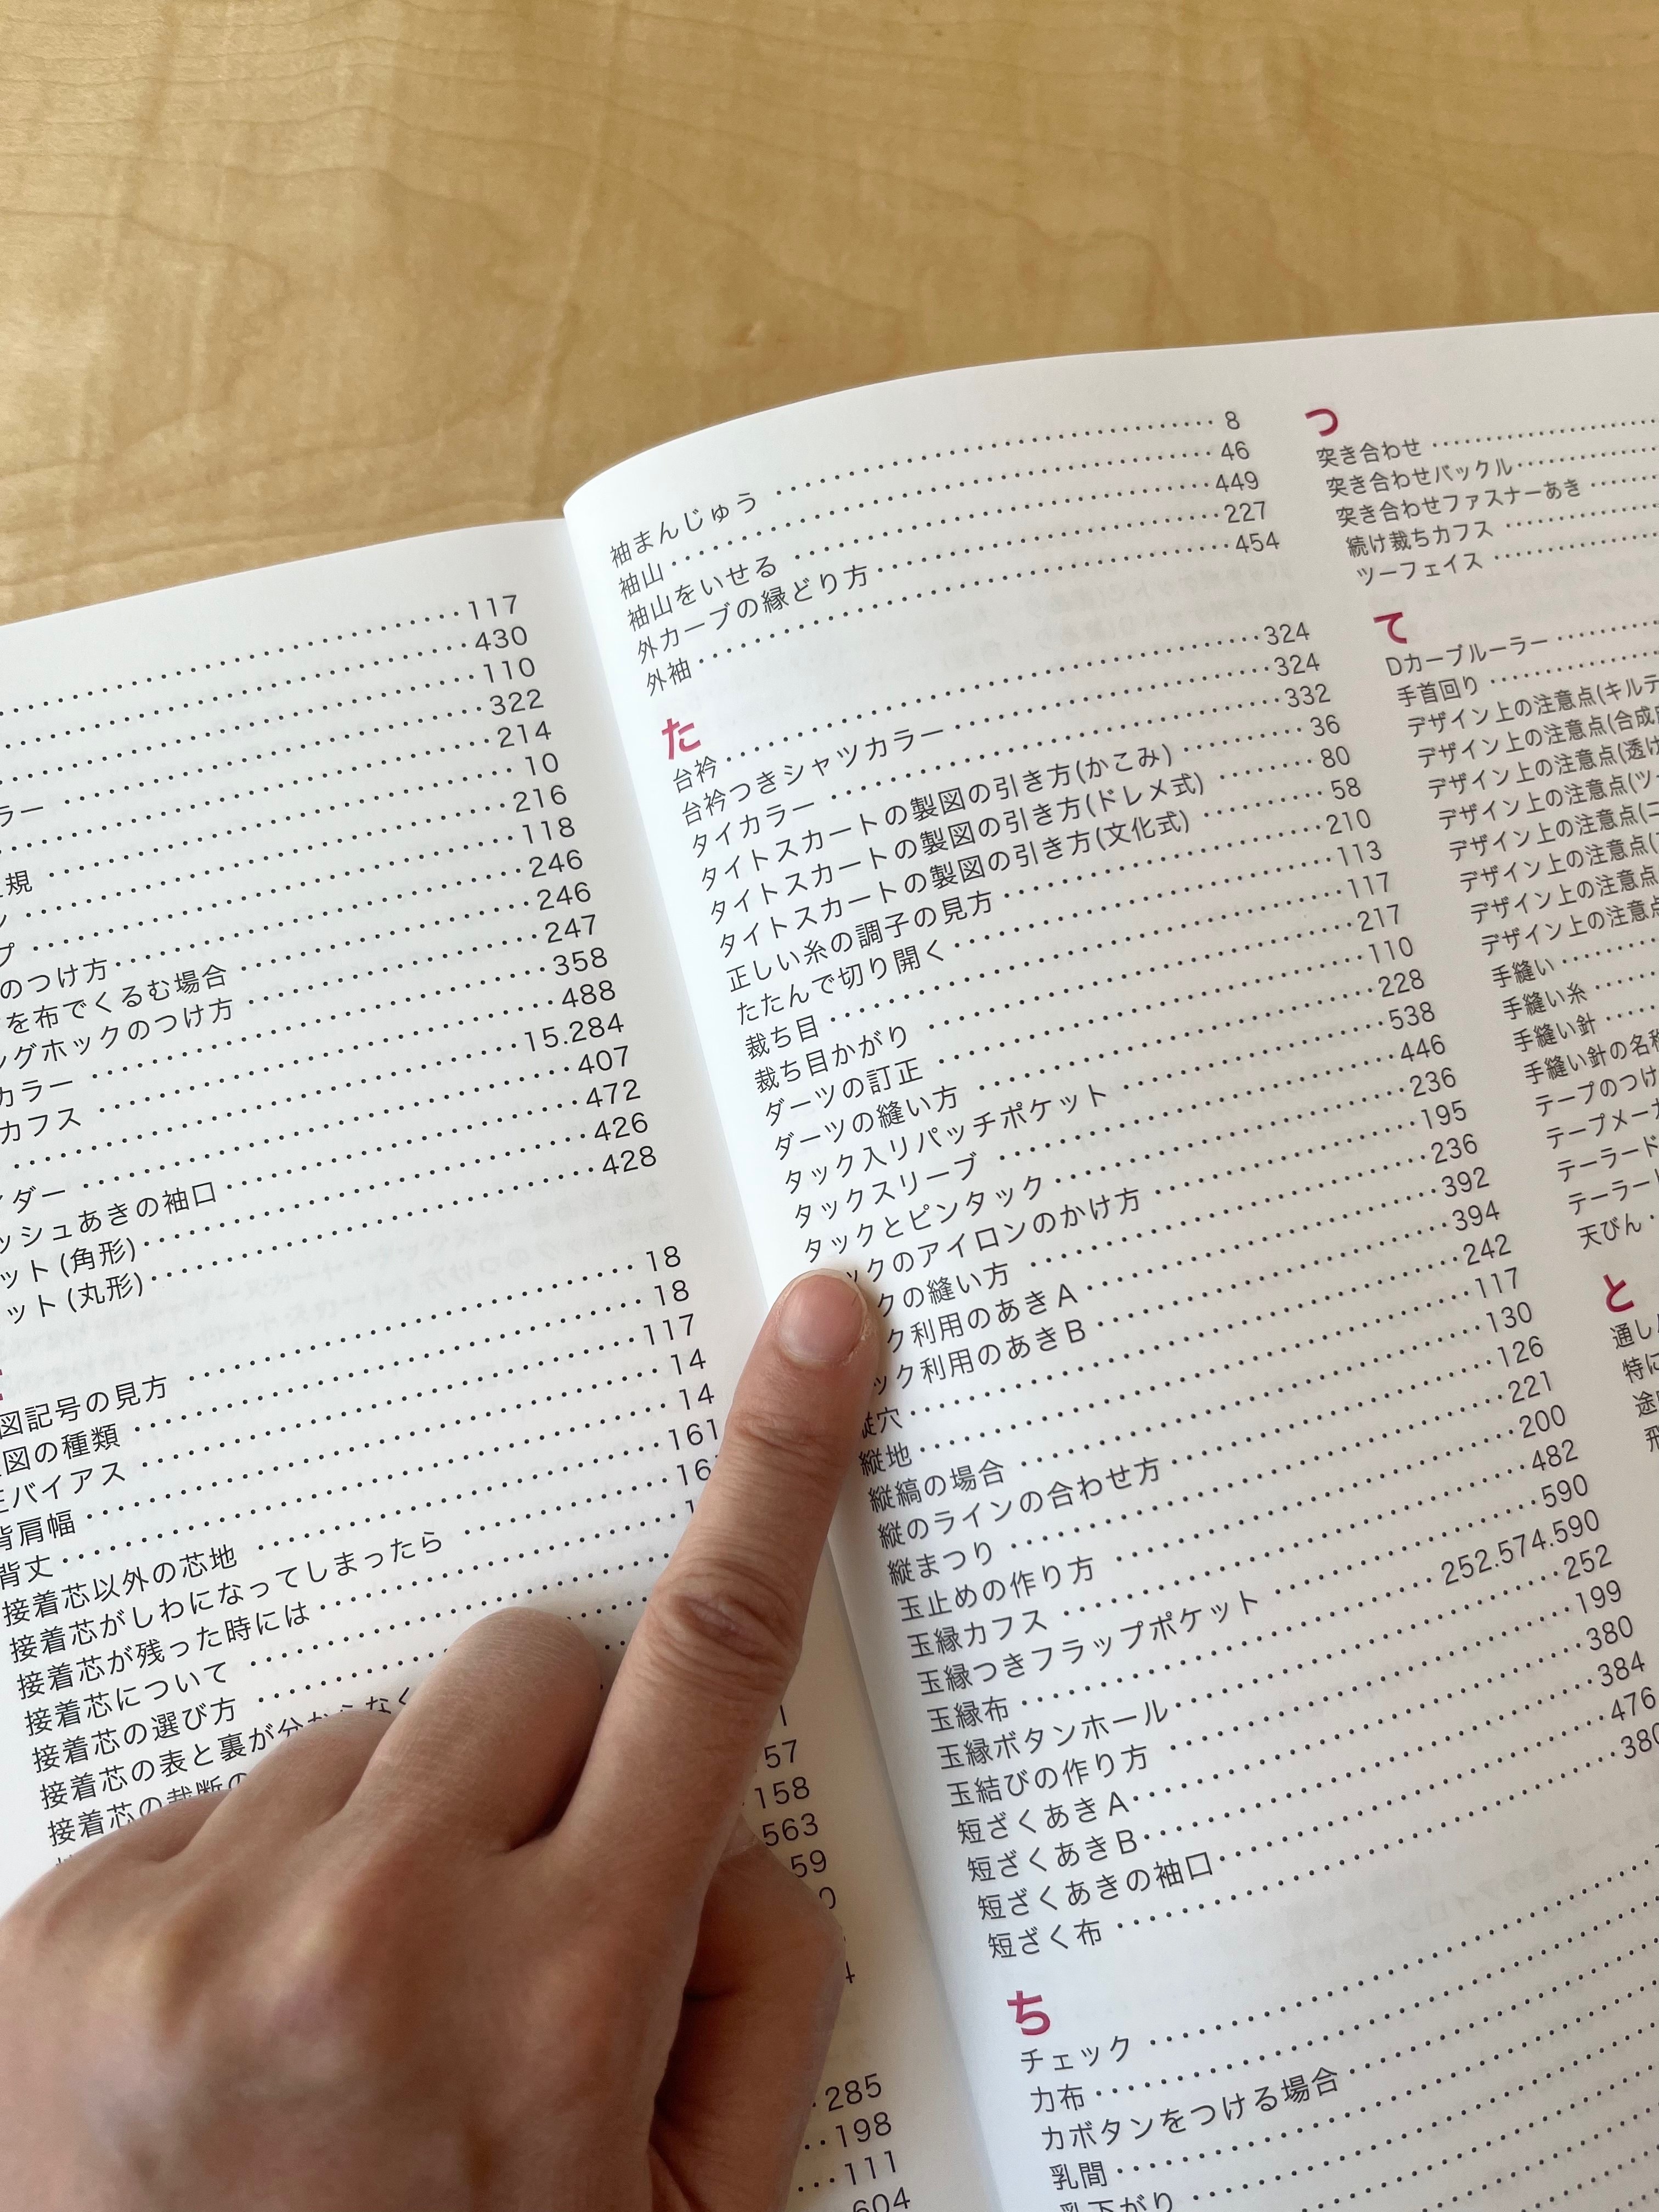 117
430
110
ラー 322
214
規 10
ン 216
プ 118
のつけ方 246
を布でくるむ場合 246
ングホックのつけ方 247
カラー 358
カフス 488
15.284
ダー 407
ッシュあきの袖口 472
ット(角形) 426
ット(丸形) 428
図記号の見方 18
図の種類 18
バイアス 117
背肩幅 14
背丈 14
接着芯以外の芯地 161
接着芯がしわになってしまったら
接着芯が残った時には
接着芯について
接着芯の選び方
接着芯の表と裏が分からなく
接着芯の裁断の
57
158
563
59
285
198
111
604
袖まんじゅう 8
袖山 46
袖山をいせる 449
外カーブの縁どり方 227
外袖 454
た
台衿 324
台衿つきシャツカラー 324
タイカラー 332
タイトスカートの製図の引き方(かこみ) 36
タイトスカートの製図の引き方(ドレメ式) 80
タイトスカートの製図の引き方(文化式) 58
正しい糸の調子の見方 210
たたんで切り開く 113
裁ち目 117
裁ち目かがり 217
ダーツの訂正 110
ダーツの縫い方 228
タック入りパッチポケット 538
タックスリーブ 446
タックとピンタック 236
ックのアイロンのかけ方 195
クの縫い方 236
ク利用のあきA 392
ック利用のあきB 394
縦穴 242
縦地 117
縦縞の場合 130
縦のラインの合わせ方 126
縦まつり 221
玉止めの作り方 200
玉縁カフス 482
玉縁つきフラップポケット 590
玉縁布 252.574.590
玉縁ボタンホール 252
玉結びの作り方 199
短ざくあきA 380
短ざくあきB 384
短ざくあきの袖口 476
短ざく布 380
ち
チェック
力布
力ボタンをつける場合
乳間
乳下がり
つ
突き合わせ
突き合わせバックル
突き合わせファスナーあき
続け裁ちカフス
ツーフェイス
て
Dカーブルーラー
手首回り
デザイン上の注意点(キルテ
デザイン上の注意点(合成
デザイン上の注意点(透け
デザイン上の注意点(ツ
デザイン上の注意点(ニ
デザイン上の注意点(
デザイン上の注意点
デザイン上の注意点
手縫い
手縫い糸
手縫い針
手縫い針の名称
テープのつけ
テープメーカ
テーラード
テーラー
天びん
と
通し
特に
途